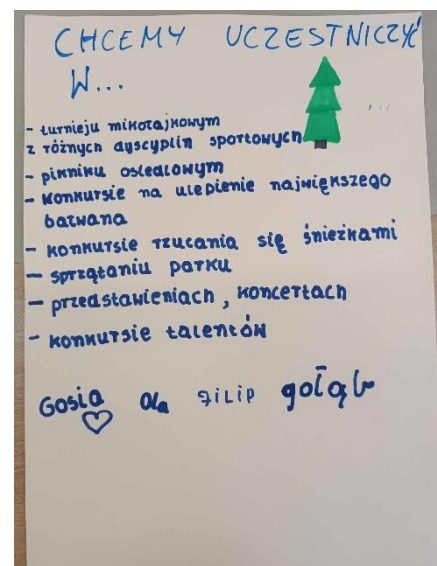 CHCEMY UCZESTNICZYĆ
W...
- turnieju mikołajkowym
z różnych dyscyplin sportowych
- pikniku osiedlowym
- konkursie na ulepienie największego
bałwana
- konkursie rzucania się śnieżkami
- sprzątaniu parku
- przedstawieniach, koncertach
- konkursie talentów
Gosia Ola FiLiP gołąb